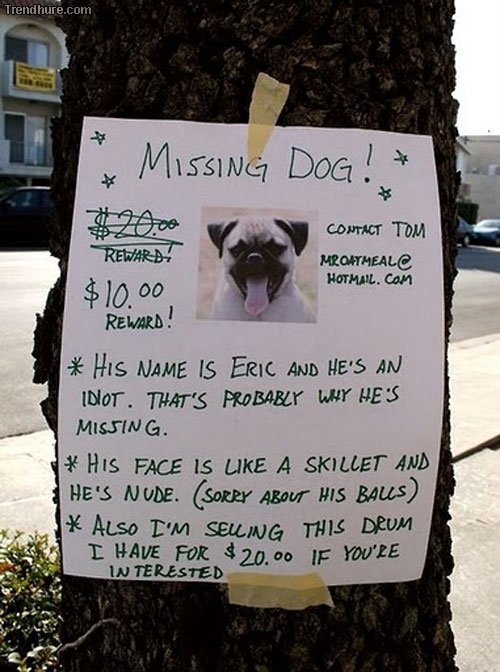 Trendhure.com
MISSING DOG!
$20.00
REWARD!
$10.00
REWARD!
CONTACT TOM
MROATMEAL@
HOTMAIL.COM
* HIS NAME IS ERIC AND HE'S AN
IDIOT. THAT'S PROBABLY WHY HE'S
MISSING.
* HIS FACE IS LIKE A SKILLET AND
HE'S NUDE. (SORRY ABOUT HIS BALLS)
* ALSO I'M SELLING THIS DRUM
I HAVE FOR $20.00 IF YOU'RE
INTERESTED